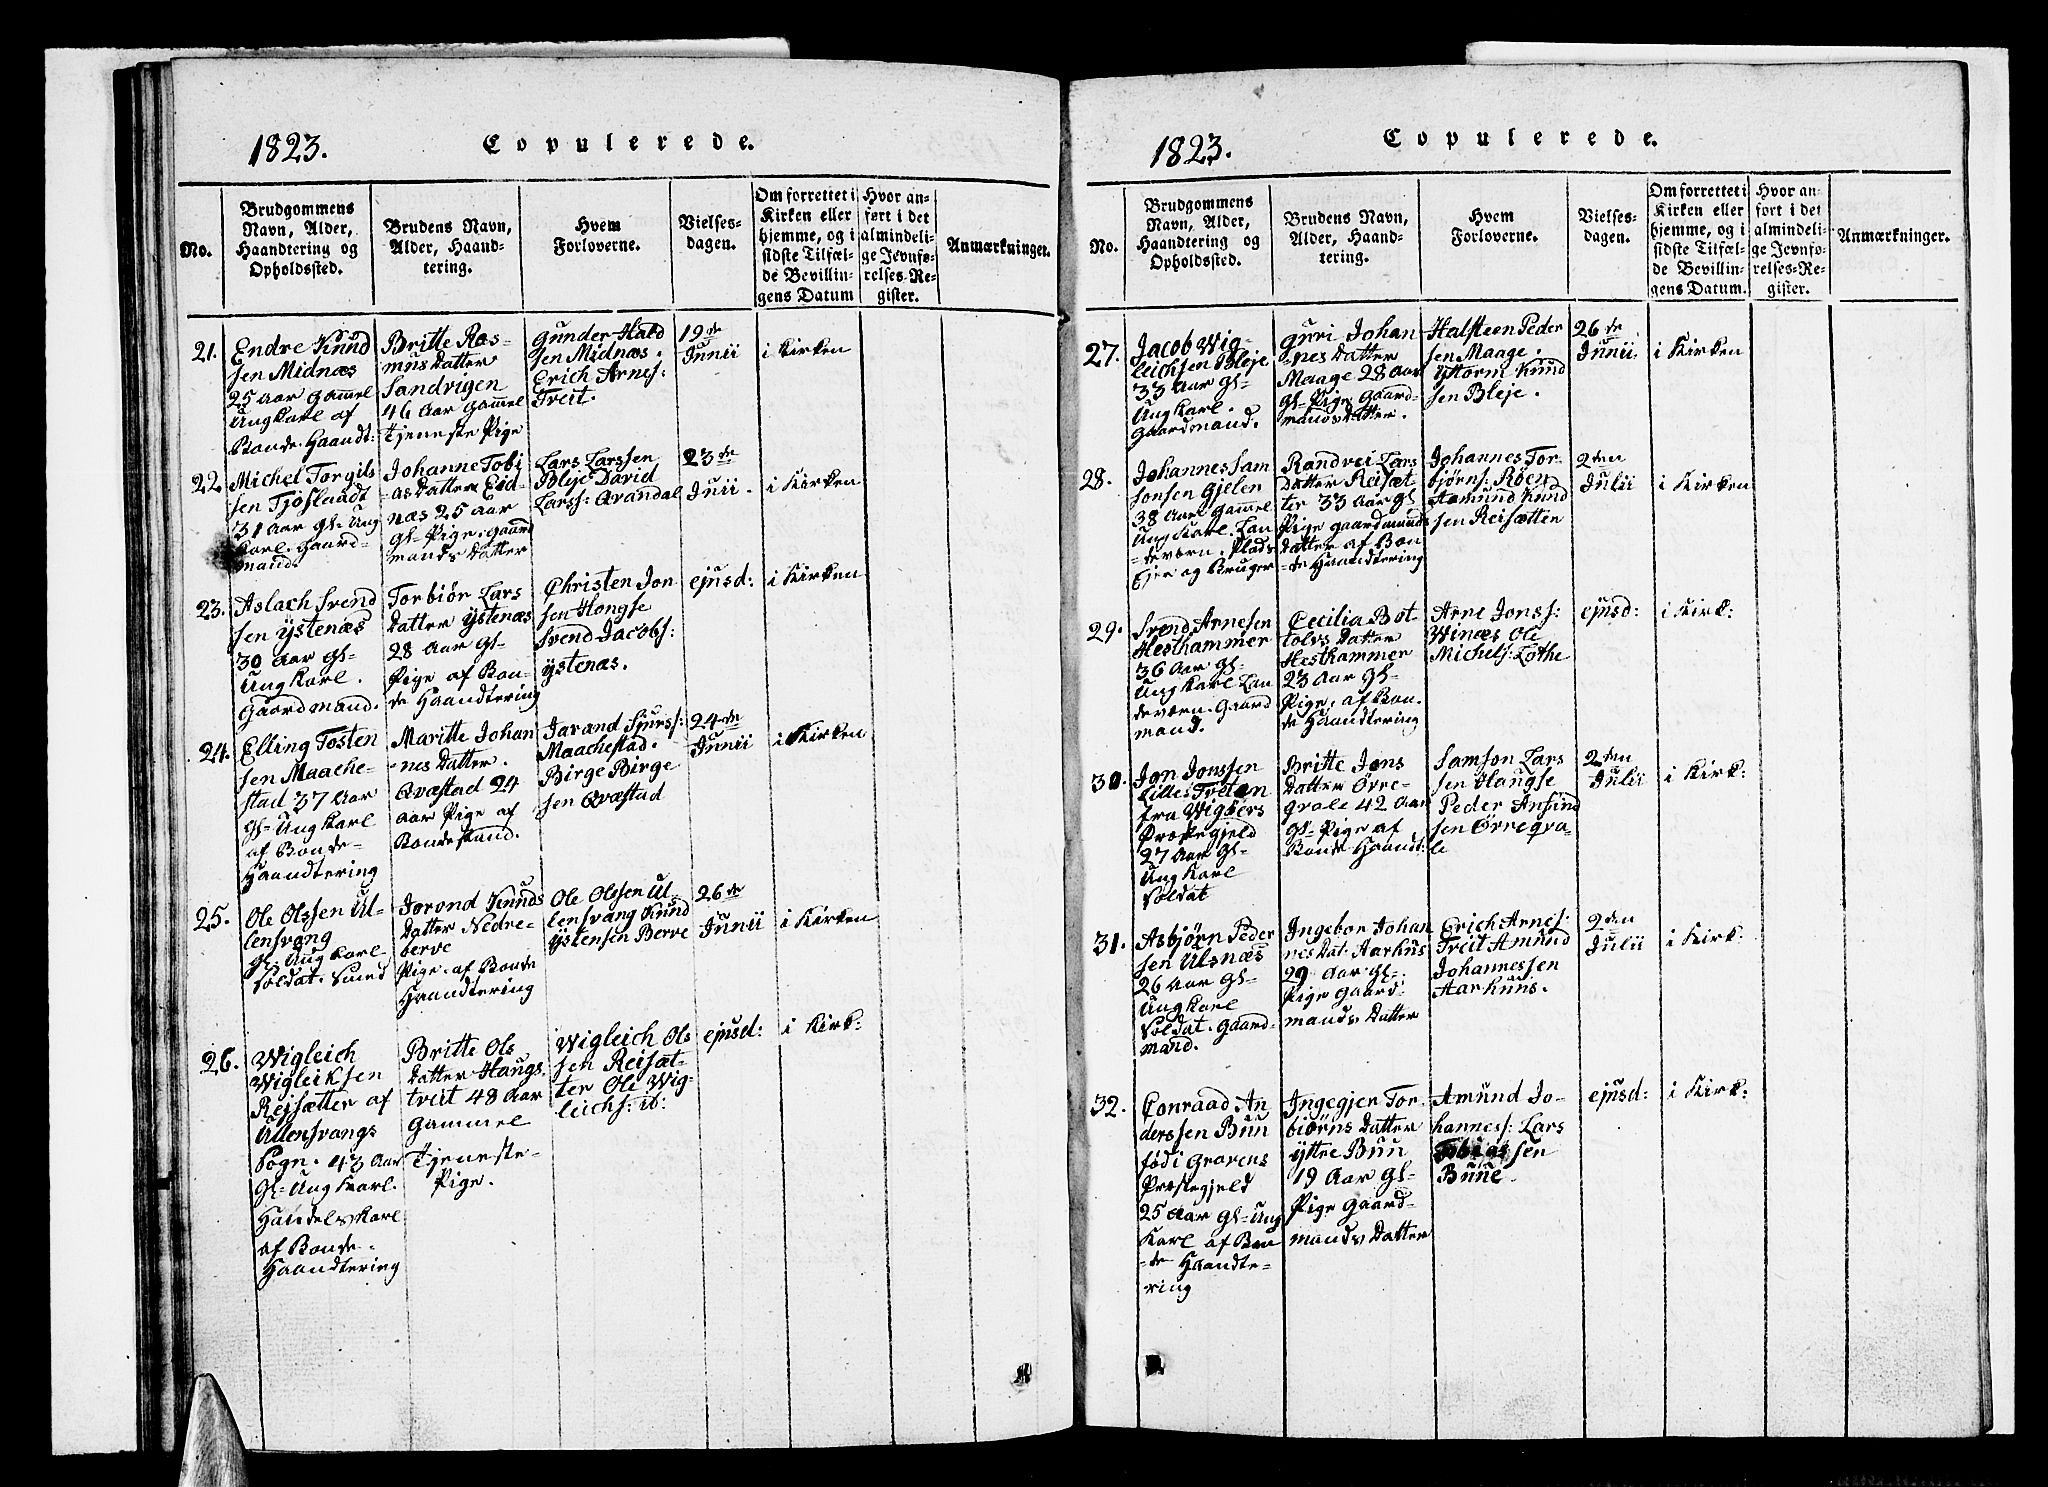 1823. Copulerede.
No.
Brudgommens
Navn, Alder,
Haandtering og
Opholdssted.
Brudens Navn,
Alder, Haand-
tering.
Hvem
Forloverne.
Vielses-
dagen.
Om forrettet i
Kirken eller
hjemme, og i
sidste Tilfæl-
de Bevillin-
gens Datum
Hvor an-
ført i det
almindeli-
ge Jevnfø-
relses-Re-
gister.
Anmærkninger.
21.
Endre Knud
sen Midnæs
25 Aar Gammel
Ungkarl af
Bonde-Haandt:
Britte Ras-
mus Datter
Sandvigen
46 Aar Gammel
Tjeneste Pige
Gunder Hald
sen Midnæs.
Erich Arnes:
Treit.
19de
Junii
i Kirken
22
Michel Torgils
sen Tjoflaadt
31 Aar Gl- Ung
Karl. Gaard-
mand.
Johanne Tobi
as Datter Eid-
næs 25 Aar
Gl- Pige. Gaard
mands Datter
Lars Larssen
Bleje David
Larss: Qvandal
23de
Junii.
i Kirken
23.
Aslach Svend
sen Ystenæs
30 Aar Gl-
Ung Karl.
Gaardmand.
Torbiør Lars
Datter Ystenæs
28 Aar Gl-
Pige af Bon-
de Haandtering
Christen Jon
sen Hougse
Svend Jacobs:
Ystenæs.
ejusd:
i Kirken
24.
Elling Tosten
sen Maache-
stad 37 Aar
Gl- Ung Karl
af Bonde-
Haandtering
Maritte Johan
-nes Datter.
Qvæstad 24
Aar Pige af
Bondestand.
Jarand Sjurss:
Maachestad.
Birge Birge
sen Qvæstad
24de
Junii
i Kirken
25.
Ole Olssen Ul-
lensvang
Gl- Ung Karl
Soldat. Smed
Jorond Knuds
Datter Nedre-
berve
Pige. af Bonde
Haandtering
Ole Olssen Ul-
lensvang Knud
Ystensen Berve
26de
Junii
i Kirken
26.
Wigleich
Wigleiksen
Rejsætter af
Ullensvangs
Sogn. 43 Aar
Gl- Ung Karl.
Handelskarl
af Bonde-
Haandtering
Britte Ols
Datter Haugs-
tveit 48 Aar
Gammel
Tjeneste-
Pige.
Wigleich Ols
sen Reisæt-
ter Ole Wig-
leichs: ib:
ejusd:
i Kirk:
1823. Copulerede.
No.
Brudgommens
Navn, Alder,
Haandtering og
Opholdssted.
Brudens Navn,
Alder, Haand-
tering.
Hvem
Forloverne.
Vielses-
dagen.
Om forrettet i
Kirken eller
hjemme, og i
sidste Tilfæl-
de Bevillin-
gens Datum.
Hvor an-
ført i det
almindeli-
ge Jevnfø-
relses-Re-
gister.
Anmærkninger.
27.
Jacob Wig-
leichsen Bleje
33 Aar Gl-
Ung Karl.
Gaardmand.
Guri Johan
-nes Datter
Maage 28 Aar
Gl- Pige Gaard-
mands Datter.
Halsteen Peder
sen Maage.
Yttorm Knud
sen Bleje.
26de
Junii.
i Kirken
28.
Johannes Sam
sonsen Gjelen
38 Aar Gammel
Ung Karl. Lan
-deværn. Plads
Ejer og Bruger
Randvei Lars
Datter Reisæt
ter 33 Aar Gl
Pige Gaardmands
Datter af Bon
-de Haandtering
Johannes Tor-
bjørns. Røen
Aamund Knud
sen Reisætten
2den
Julii
i Kirken
29.
Svend Arnesen
Hesthammer
36 Aar Gl-
Ung Karl Lan
deværn. Gaard
mand.
Cecilia Bot
tolvs Datter
Hesthammer
23 Aar Gl-
Pige. af Bon-
de Haandtering
Arne Jonss:
Winæs Ole
Michels: Lothe
ejusd:
i Kirk:
30.
Jon Jonssen
Lilletveten
fra Wigøers
Præstegjeld
27 Aar Gl-
Ung Karl
Soldat
Britte Jons
Datter Øvre-
grale 42 Aar
Gl- Pige af
Bonde Haandt:
Samson Lars
sen Haugse
Peder Ansind
sen Ørregra-
le
2den
Julii
i Kirk:
31.
Asbjørn Peder
sen Ulsnæs
26 Aar Gl-
Ung Karl
Soldat. Gaard-
mand.
Ingebor Johan
nes Dat. Aarhus
29 Aar Gl-
Pige Gaard-
mands Datter
Erich Arnes:
Treit Amund
Johannessen
Aarhuus.
2den
Julii
i Kirk:
32.
Conraad An
derssen Bun
født i Gravens
Præstegjeld
25 Aar Gl- Ung
Karl af Bon
-de Haandte-
ring
Ingegjen Tor-
biørns Datter
Yttre Bun
19 Aar Gl-
Pige Gaard-
mands Datter
Amund Jo-
hanness: Lars
Tobiassen
Bune.
ejusd:
i Kirk: